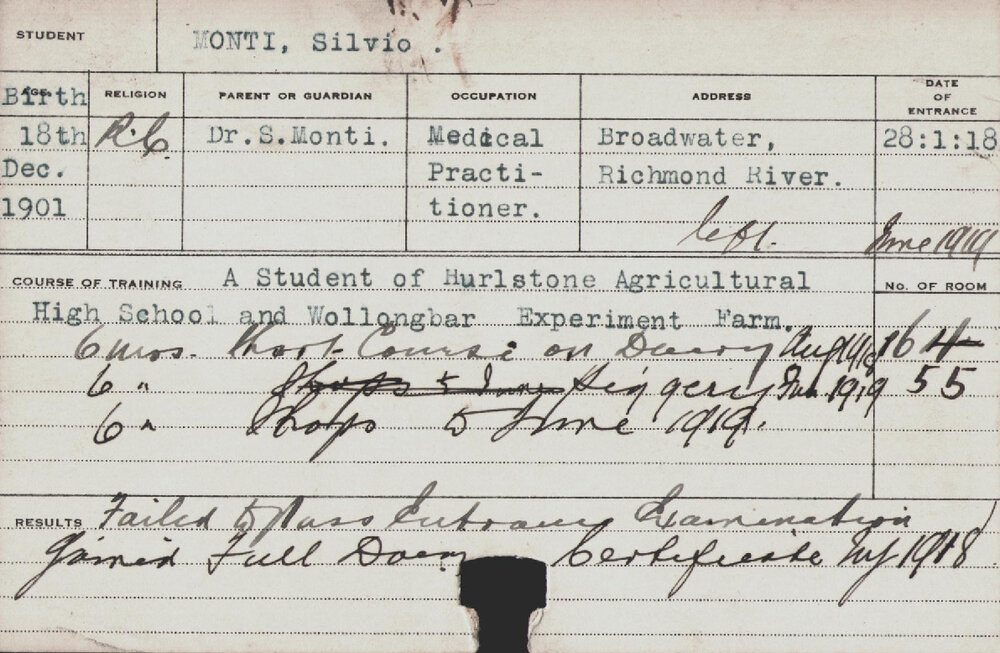 STUDENT MONTI, Silvio .
AGE. RELIGION PARENT OR GUARDIAN OCCUPATION ADDRESS DATE OF ENTRANCE
Birth
18th R.C. Dr.S.Monti. Medical Broadwater, 28:1:18
Dec. Practi- Richmond River.
1901 tioner.
left. June 1919
COURSE OF TRAINING A Student of Hurlstone Agricultural No. OF ROOM
High School and Wollongbar Experiment Farm.
6 mos. Short Course on Dairy Aug 1918 164
6 " Shops to June Piggery Jan 1919 55
6 " Shops to June 1919.
RESULTS Failed to pass Entrance Examination
Gained Full Dairy Certificate 1918.